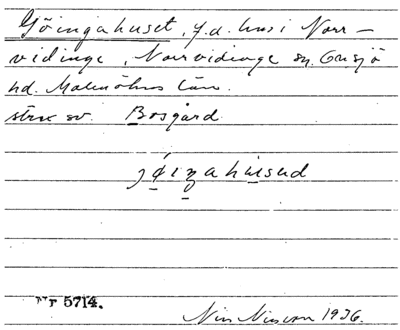 Göingahuset, f.d. hus i Norr-
vidinge, Norrvidinge sn. Onsjö
hd. Malmöhus län.
strax sv. Bosgård
jöiŋahusəd
Nr 5714.
Nils Nilsson 1936.